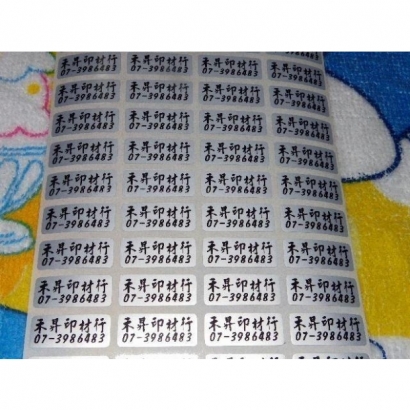 禾昇印材行 禾昇印材行 禾昇印材行 禾昇印材行
07-3986483 07-3986483 07-3986483 07-3986483
禾昇印材行 禾昇印材行 禾昇印材行 禾昇印材行
07-3986483 07-3986483 07-3986483 07-3986483
禾昇印材行 禾昇印材行 禾昇印材行 禾昇印材行
07-3986483 07-3986483 07-3986483 07-3986483
禾昇印材行 禾昇印材行 禾昇印材行 禾昇印材行
07-3986483 07-3986483 07-3986483 07-3986483
禾昇印材行 禾昇印材行 禾昇印材行 禾昇印材行
07-3986483 07-3986483 07-3986483 07-3986483
禾昇印材行 禾昇印材行 禾昇印材行 禾昇印材行
07-3986483 07-3986483 07-3986483 07-3986483
禾昇印材行 禾昇印材行 禾昇印材行 禾昇印材行
07-3986483 07-3986483 07-3986483 07-3986483
禾昇印材行 禾昇印材行 禾昇印材行 禾昇印材行
07-3986483 07-3986483 07-3986483 07-3986483
禾昇印材行 禾昇印材行 禾昇印材行 禾昇印材行
07-3986483 07-3986483 07-3986483 07-3986483